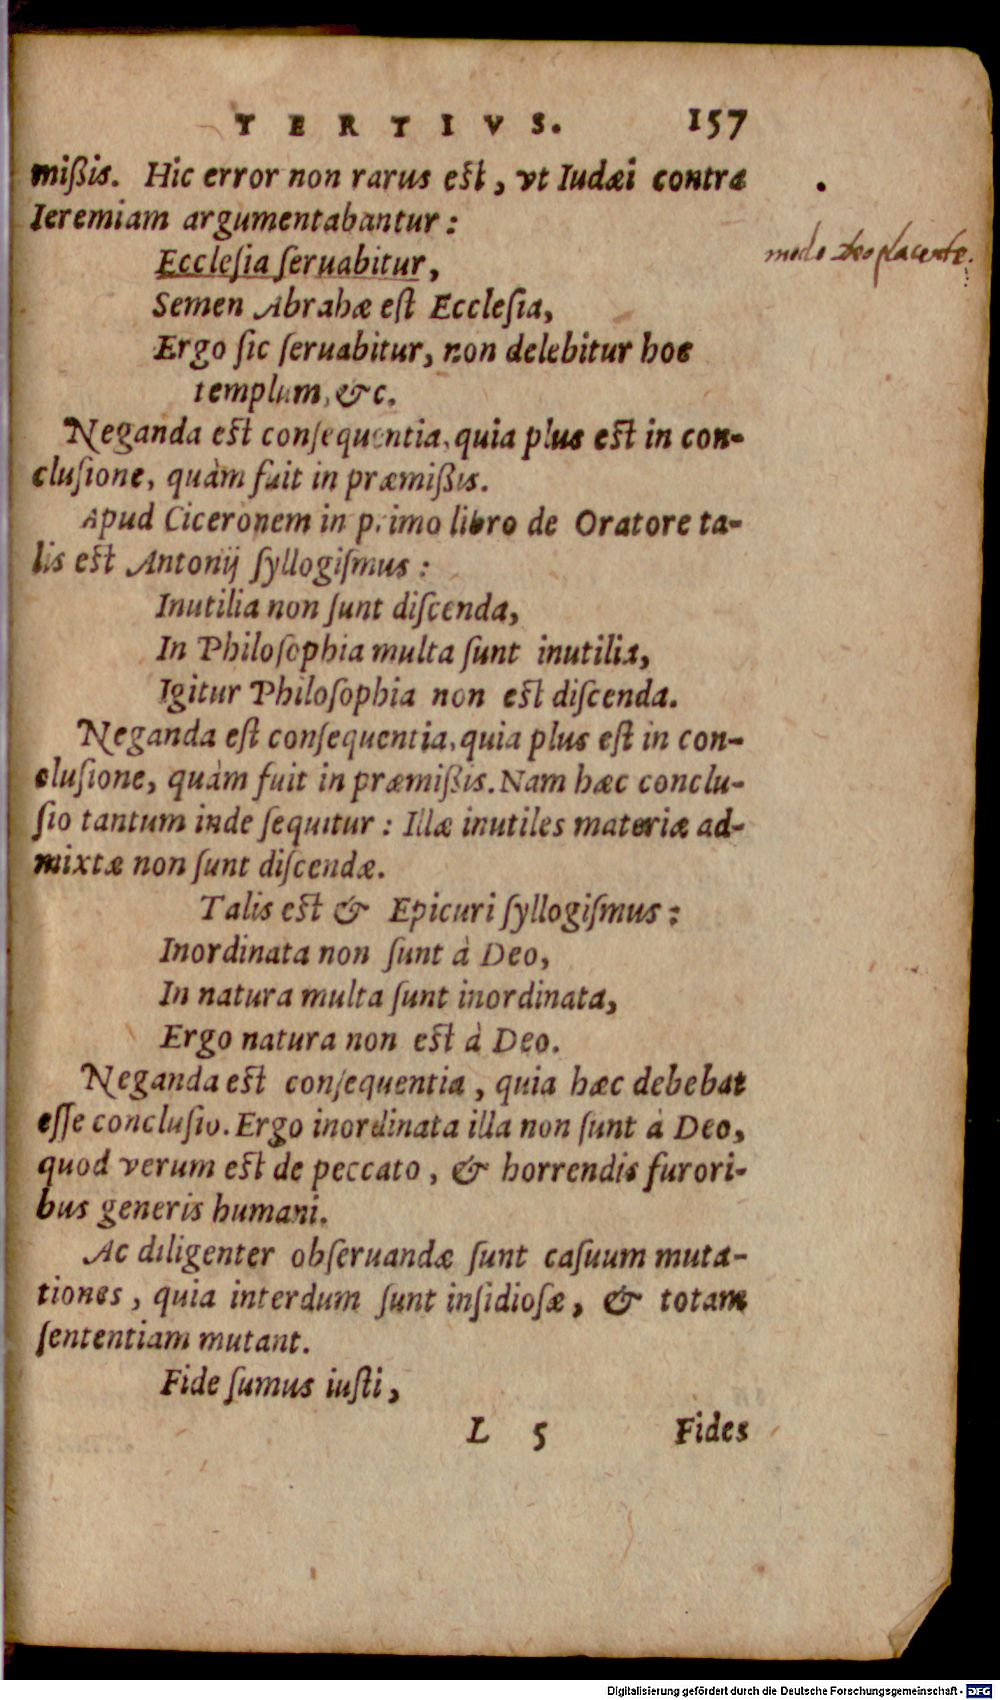 TERTIVS. 157
mißis. Hic error non rarus est, vt Iudæi contra
Ieremiam argumentabantur:
modo Deo placente.
Ecclesia seruabitur,
Semen Abrahæ est Ecclesia,
Ergo sic seruabitur, non delebitur hoc
templum, &c.
Neganda est consequentia, quia plus est in con-
clusione, quàm fuit in præmißis.
Apud Ciceronem in primo libro de Oratore ta-
lis est Antonij syllogismus:
Inutilia non sunt discenda,
In Philosophia multa sunt inutilia,
Igitur Philosophia non est discenda.
Neganda est consequentia, quia plus est in con-
clusione, quàm fuit in præmißis. Nam hæc conclu-
sio tantum inde sequitur: Illæ inutiles materiæ ad-
mixtæ non sunt discendæ.
Talis est & Epicuri syllogismus:
Inordinata non sunt à Deo,
In natura multa sunt inordinata,
Ergo natura non est à Deo.
Neganda est consequentia, quia hæc debebat
esse conclusio. Ergo inordinata illa non sunt à Deo,
quod verum est de peccato, & horrendis furori-
bus generis humani.
Ac diligenter obseruandæ sunt casuum muta-
tiones, quia interdum sunt insidiosæ, & totam
sententiam mutant.
Fide sumus iusti,
L 5 Fides
Digitalisierung gefördert durch die Deutsche Forschungsgemeinschaft - DFG